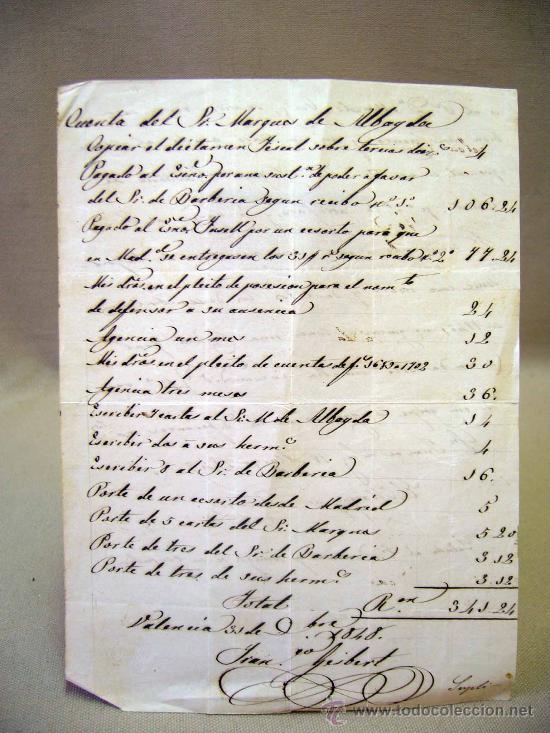 Cuenta del Sr. Marques de Albayda
Copiar el dictamen Fiscal sobre 4
Pagado al Esno. para una sust.n de poder a favor
del Sr. de Barberia segun recibo n.º 1º 106.24
Pagado al Esno. Insell por un esorto para que
en Mad.d se entreguen los segun recibo n.º 2º 77.24
Mis dros. en el pleito de posesion para el nom.to
de defensor a su ausencia 24
Agencia un mes 12
Mis dros. en el pleito de cuenta de f.s 1643 a 1702 30
Agencia tres meses 36.
Escribir 7 cartas al Sr. M. de Albayda 14
Escribir dos a sus herm.s 4
Escribir 8 al Sr. de Barberia 16.
Porte de un esorto desde Madrid 5
Porte de 5 cartas del Sr. Marques 5 20
Porte de tres del Sr. de Barberia 3 12
Porte de tres de sus herm.s 3.12
Total R.s vn 341 24
Valencia 31 de 9bre 1848.
Fran.co Gisbert
todocoleccion.net